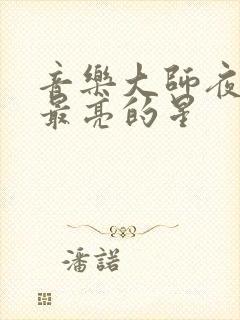 音樂大師夜
最亮的星
潘諾